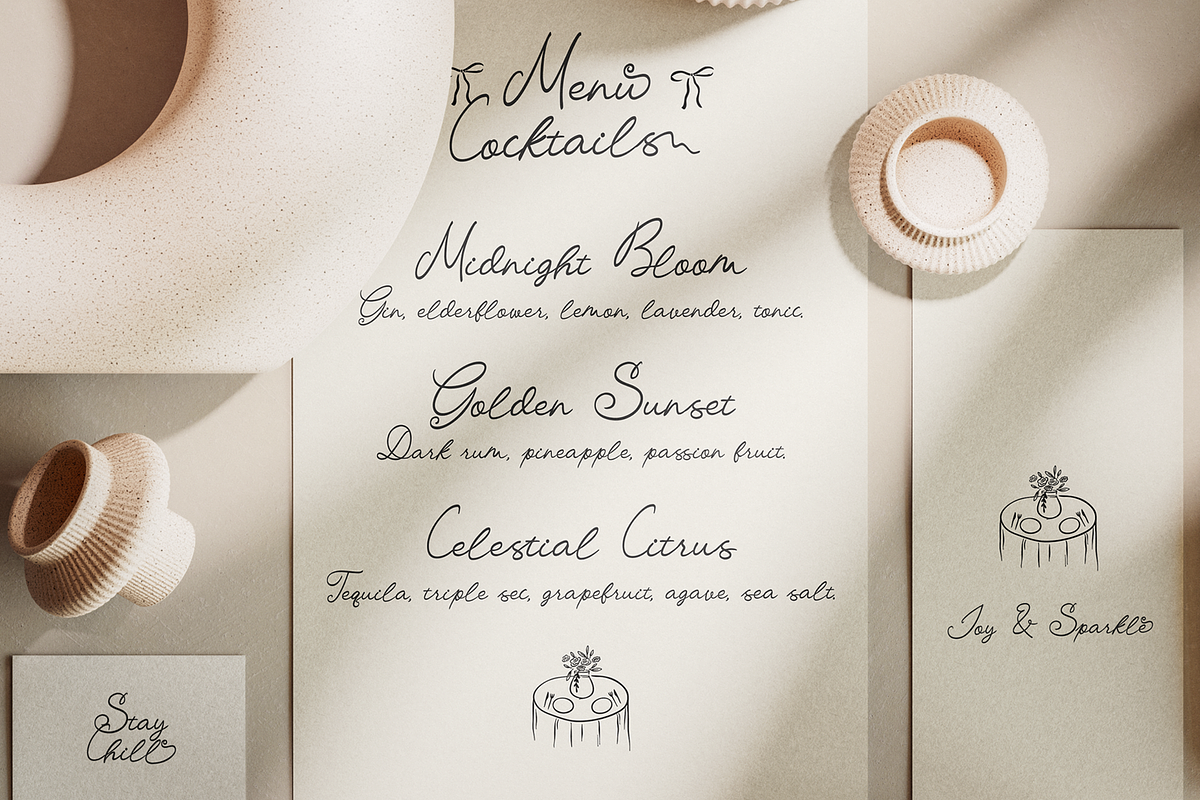 Menu
Cocktails
Midnight Bloom
Gin, elderflower, lemon, lavender, tonic.
Golden Sunset
Dark rum, pineapple, passion fruit.
Celestial Citrus
Tequila, triple sec, grapefruit, agave, sea salt.
Joy & Sparkle
Stay
Chill